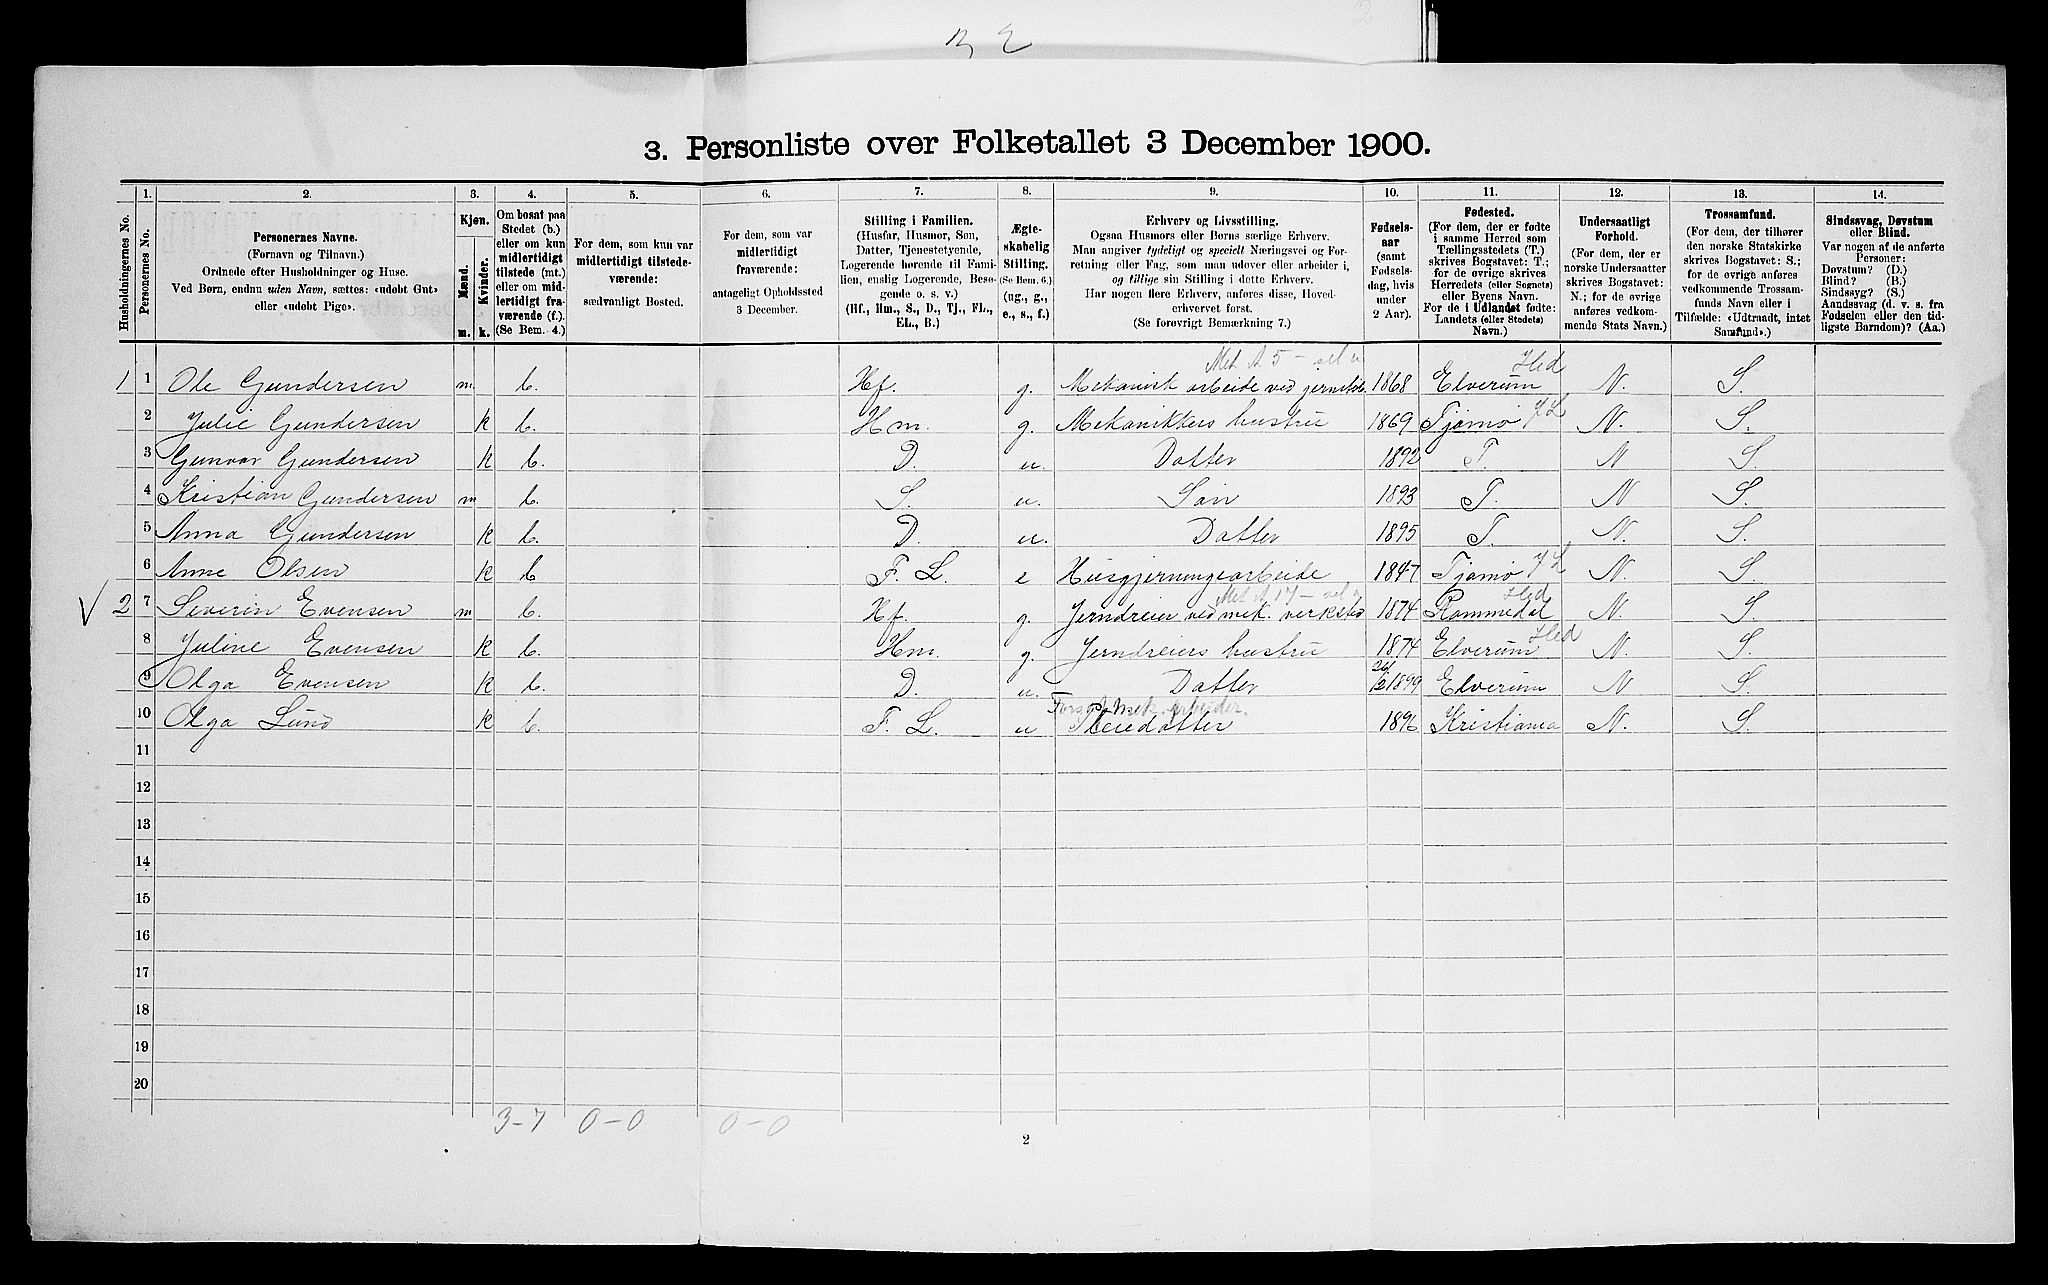 3. Personliste over Folketallet 3 December 1900.
Husholdningernes No.
1.
Personernes No.
2.
Personernes Navne.
(Fornavn og Tilnavn.)
Ordnede efter Husholdninger og Huse.
Ved Børn, endnu uden Navn, sættes: «udøbt Gut»
eller «udøbt Pige».
3.
Kjøn.
Mænd.
Kvinder.
m.
k.
4.
Om bosat paa
Stedet (b.)
eller om kun
midlertidigt
tilstede (mt.)
eller om mid-
lertidigt fra-
værende (f.).
(Se Bem. 4.)
5.
For dem, som kun var
midlertidigt tilstede-
værende:
sædvanligt Bosted.
6.
For dem, som var
midlertidigt
fraværende:
antageligt Opholdssted
3 December.
7.
Stilling i Familien.
(Husfar, Husmor, Søn,
Datter, Tjenestetyende,
Logerende hørende til Fami-
lien, enslig Logerende, Besø-
gende o. s. v.)
(Hf., Hm., S., D., Tj., FL.,
EL., B.)
8.
Ægte-
skabelig
Stilling.
(Se Bem. 6.)
(ug., g.,
e., s., f.)
9.
Erhverv og Livsstilling.
Ogsaa Husmors eller Børns særlige Erhverv.
Man angiver tydeligt og specielt Næringsvei og For-
retning eller Fag, som man udøver eller arbeider i,
og tillige sin Stilling i dette Erhverv.
Har nogen flere Erhverv, anføres disse, Hoved-
erhvervet først.
(Se forøvrigt Bemærkning 7.)
10.
Fødsels-
aar
(samt
Fødsels-
dag, hvis
under
2 Aar).
11.
Fødested.
(For dem, der er fødte
i samme Herred som
Tællingsstedets (T.)
skrives Bogstavet: T.;
for de øvrige skrives
Herredets (eller Sognets)
eller Byens Navn.
For de i Udlandet fødte:
Landets (eller Stedets)
Navn.)
12.
Undersaatligt
Forhold.
(For dem, der er
norske Undersaatter
skrives Bogstavet:
N.; for de øvrige
anføres vedkom-
mende Stats Navn.)
13.
Trossamfund.
(For dem, der tilhører
den norske Statskirke
skrives Bogstavet: S.;
for de øvrige anføres
vedkommende Trossam-
funds Navn eller i
Tilfælde: «Udtraadt, intet
Samfund».)
14.
Sindssvag, Døvstum
eller Blind.
Var nogen af de anførte
Personer:
Døvstum? (D.)
Blind? (B.)
Sindssyg? (S.)
Aandssvag (d. v. s. fra
Fødselen eller den tid-
ligste Barndom)? (Aa.)
1 1 Ole Gundersen m. b. Hf. g. Mekanisk arbeide ved 1868 Elverum Hed N. S.
2 Julie Gundersen k b. Hm. g. Mekanikkers hustru 1869 Tjømø JL N. S.
3 Gunvor Gundersen k b. D. u. Datter 1892 T. N S.
4 Kristian Gundersen m b. S. u. Søn 1893 T. N S.
5 Anna Gundersen k b. D. u. Datter 1895 T. N. S.
6 Anne Olsen k b F. L. e Husgjerningsarbeide 1847 Tjømø JL N. S.
2 7 Severin Evensen m b. Hf. g. Jerndreier ved mek. verksted 1874 Rommedal Hed N. S.
8 Juline Evensen k b. Hm. g. Jerndreiers hustru 1874 Elverum Hed N. S.
9 Olga Evensen k b. D. u. Datter 26/12 1899 Elverum N S.
10 Olga Lund k b. F. L. u Pleiedatter 1896 Kristiania N. S.
11
12
13
14
15
16
17
18
19
20
3-7 0-0 0-0
2